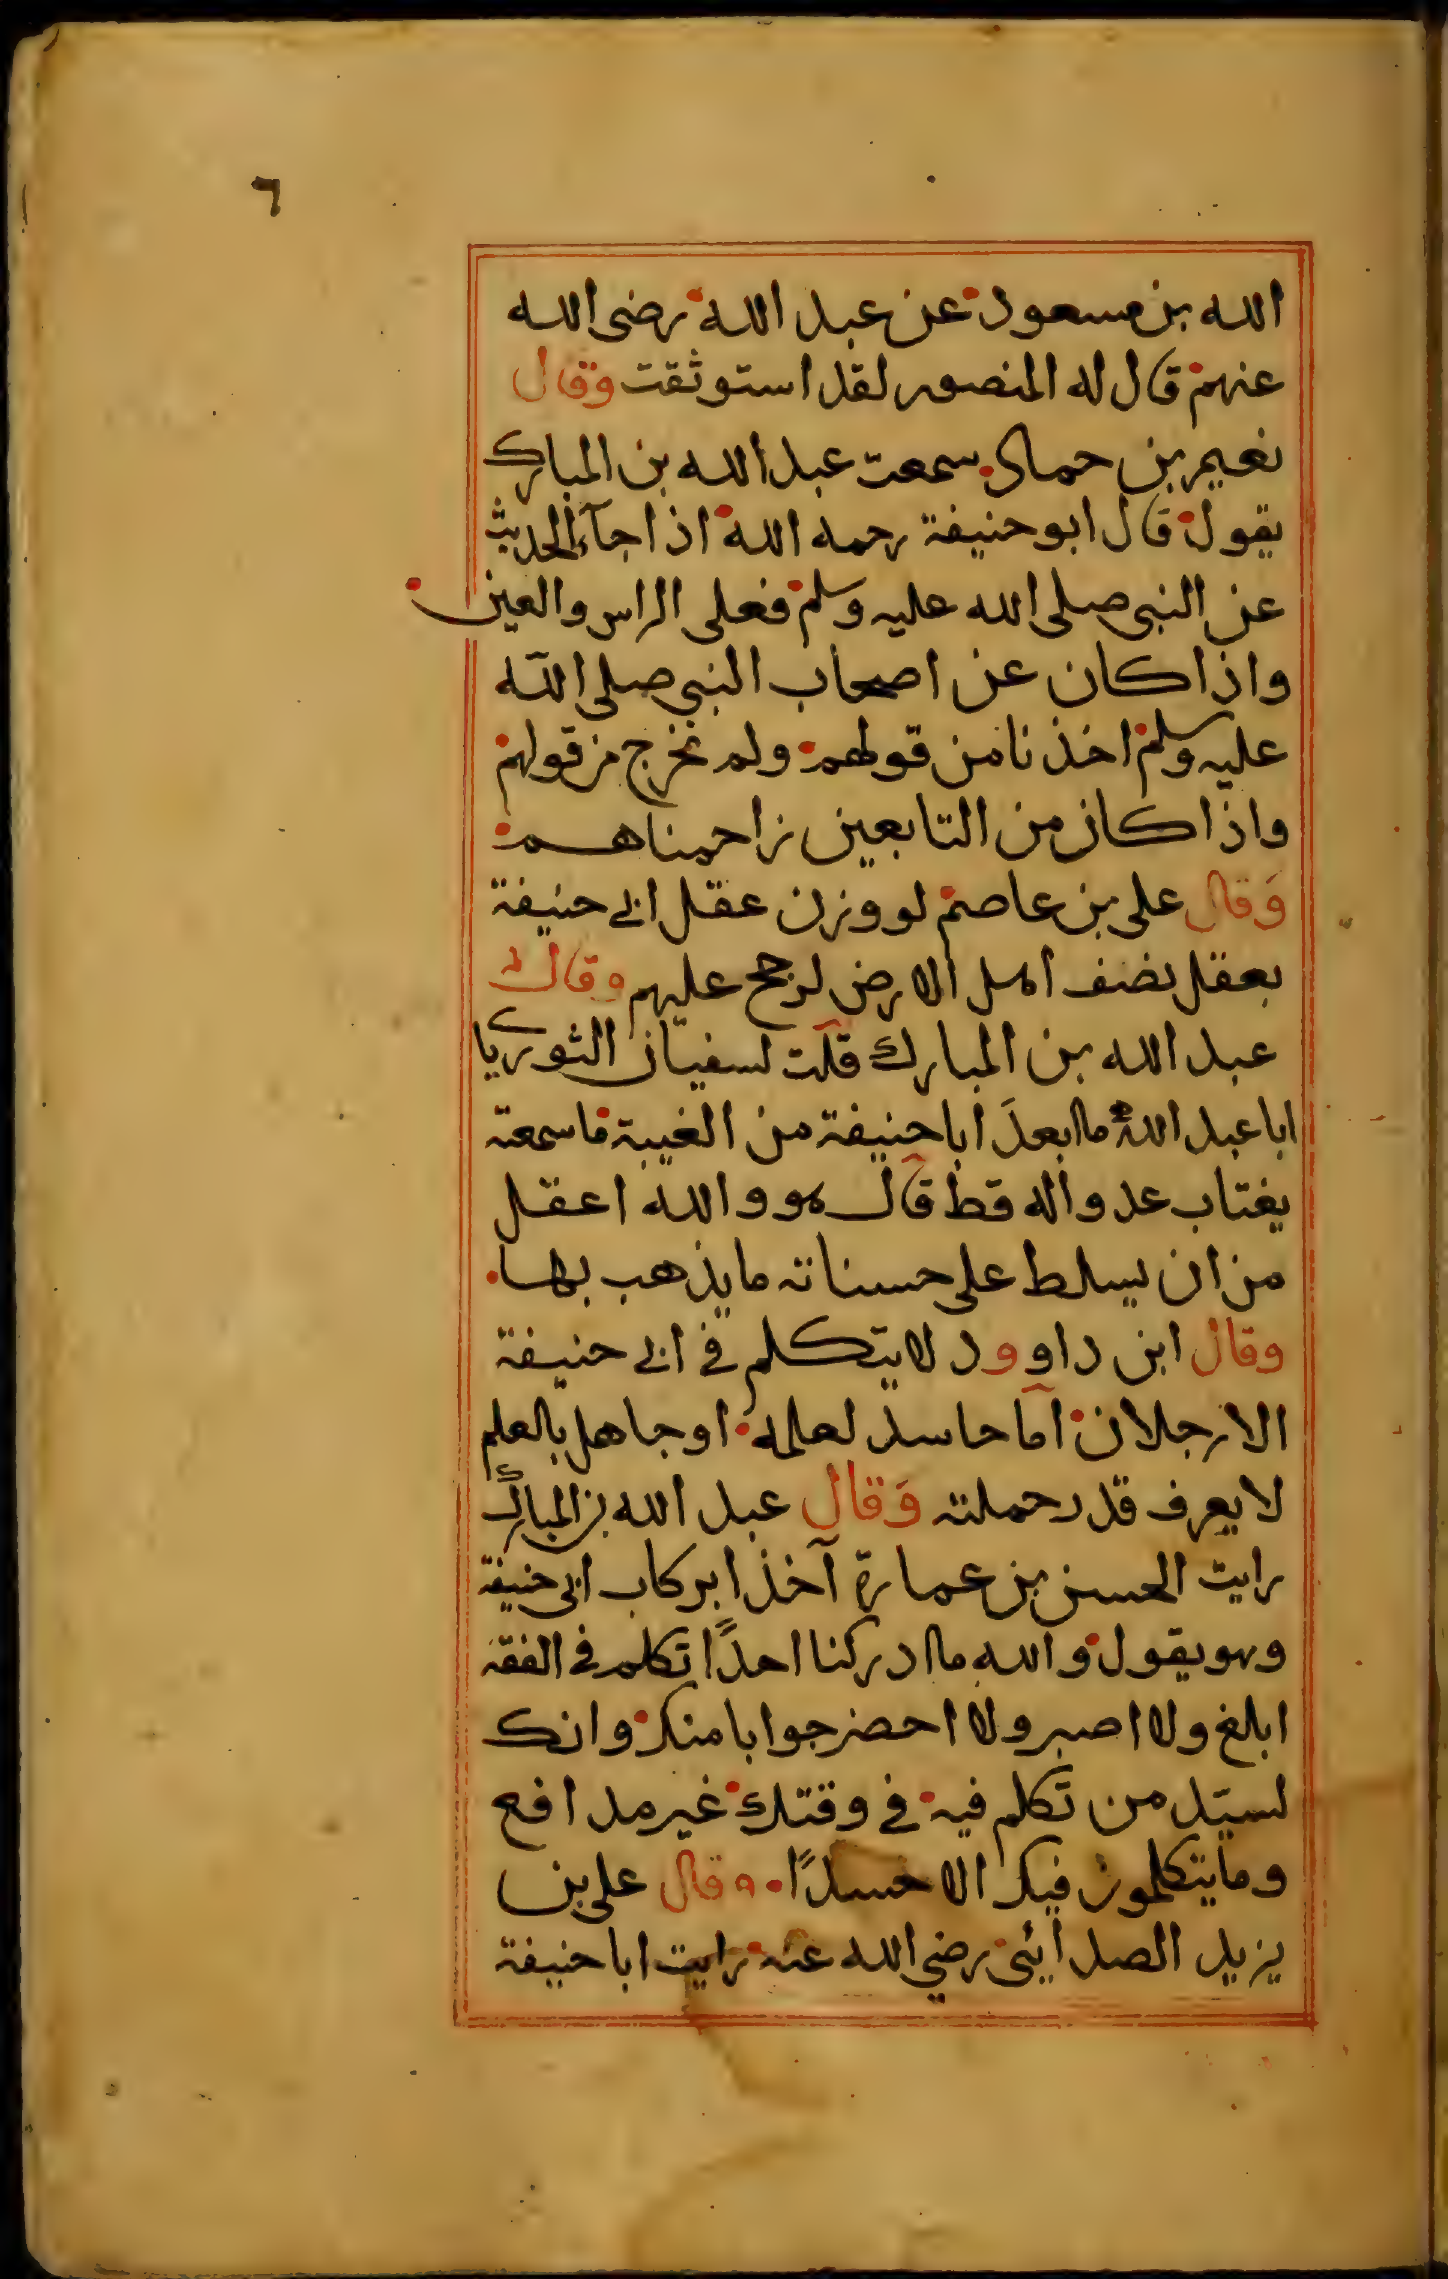 ٦
الله بن مسعود عن عبد الله رضى الله
عنهم قال له المنصور لقد استوثقت وقال
نعيم بن حماد سمعت عبد الله بن المبارك
يقول قال ابو حنيفة رحمه الله اذا جآء الحديث
عن النبى صلى الله عليه وسلم فعلى الراس والعين
واذا كان عن اصحاب النبى صلى الله
عليه وسلم اخذنا من قولهم ولم نخرج من قولهم
واذا كان من التابعين زاحمناهم
وَقال على بن عاصم لو وزن عقل ابى حنيفة
بعقل نصف اهل الارض لرجح عليهم وقال
عبد الله بن المبارك قلت لسفيان الثورى يا
ابا عبد الله ما ابعدَ ابا حنيفة من الغيبة ما سمعته
يغتاب عدوا له قط قال هو والله اعقل
من ان يسلط على حسناته ما يذهب بها
وقال ابن داوود لا يتكلم فى ابى حنيفة
الا رجلان اما حاسد لعلمه او جاهل بالعلم
لا يعرف قدر حملته وَقال عبد الله بن المبارك
رايت الحسن بن عمارة آخذا بركاب ابى حنيفة
وهو يقول والله ما ادركنا احدًا تكلم فى الفقه
ابلغ ولا اصبر ولا احضر جوابا منك وانك
لسيّد من تكلم فيه فى وقتك غير مدافع
وما يتكلمون فيك الا حسدًا وقال على بن
يزيد الصدائى رضي الله عنه رايت ابا حنيفة